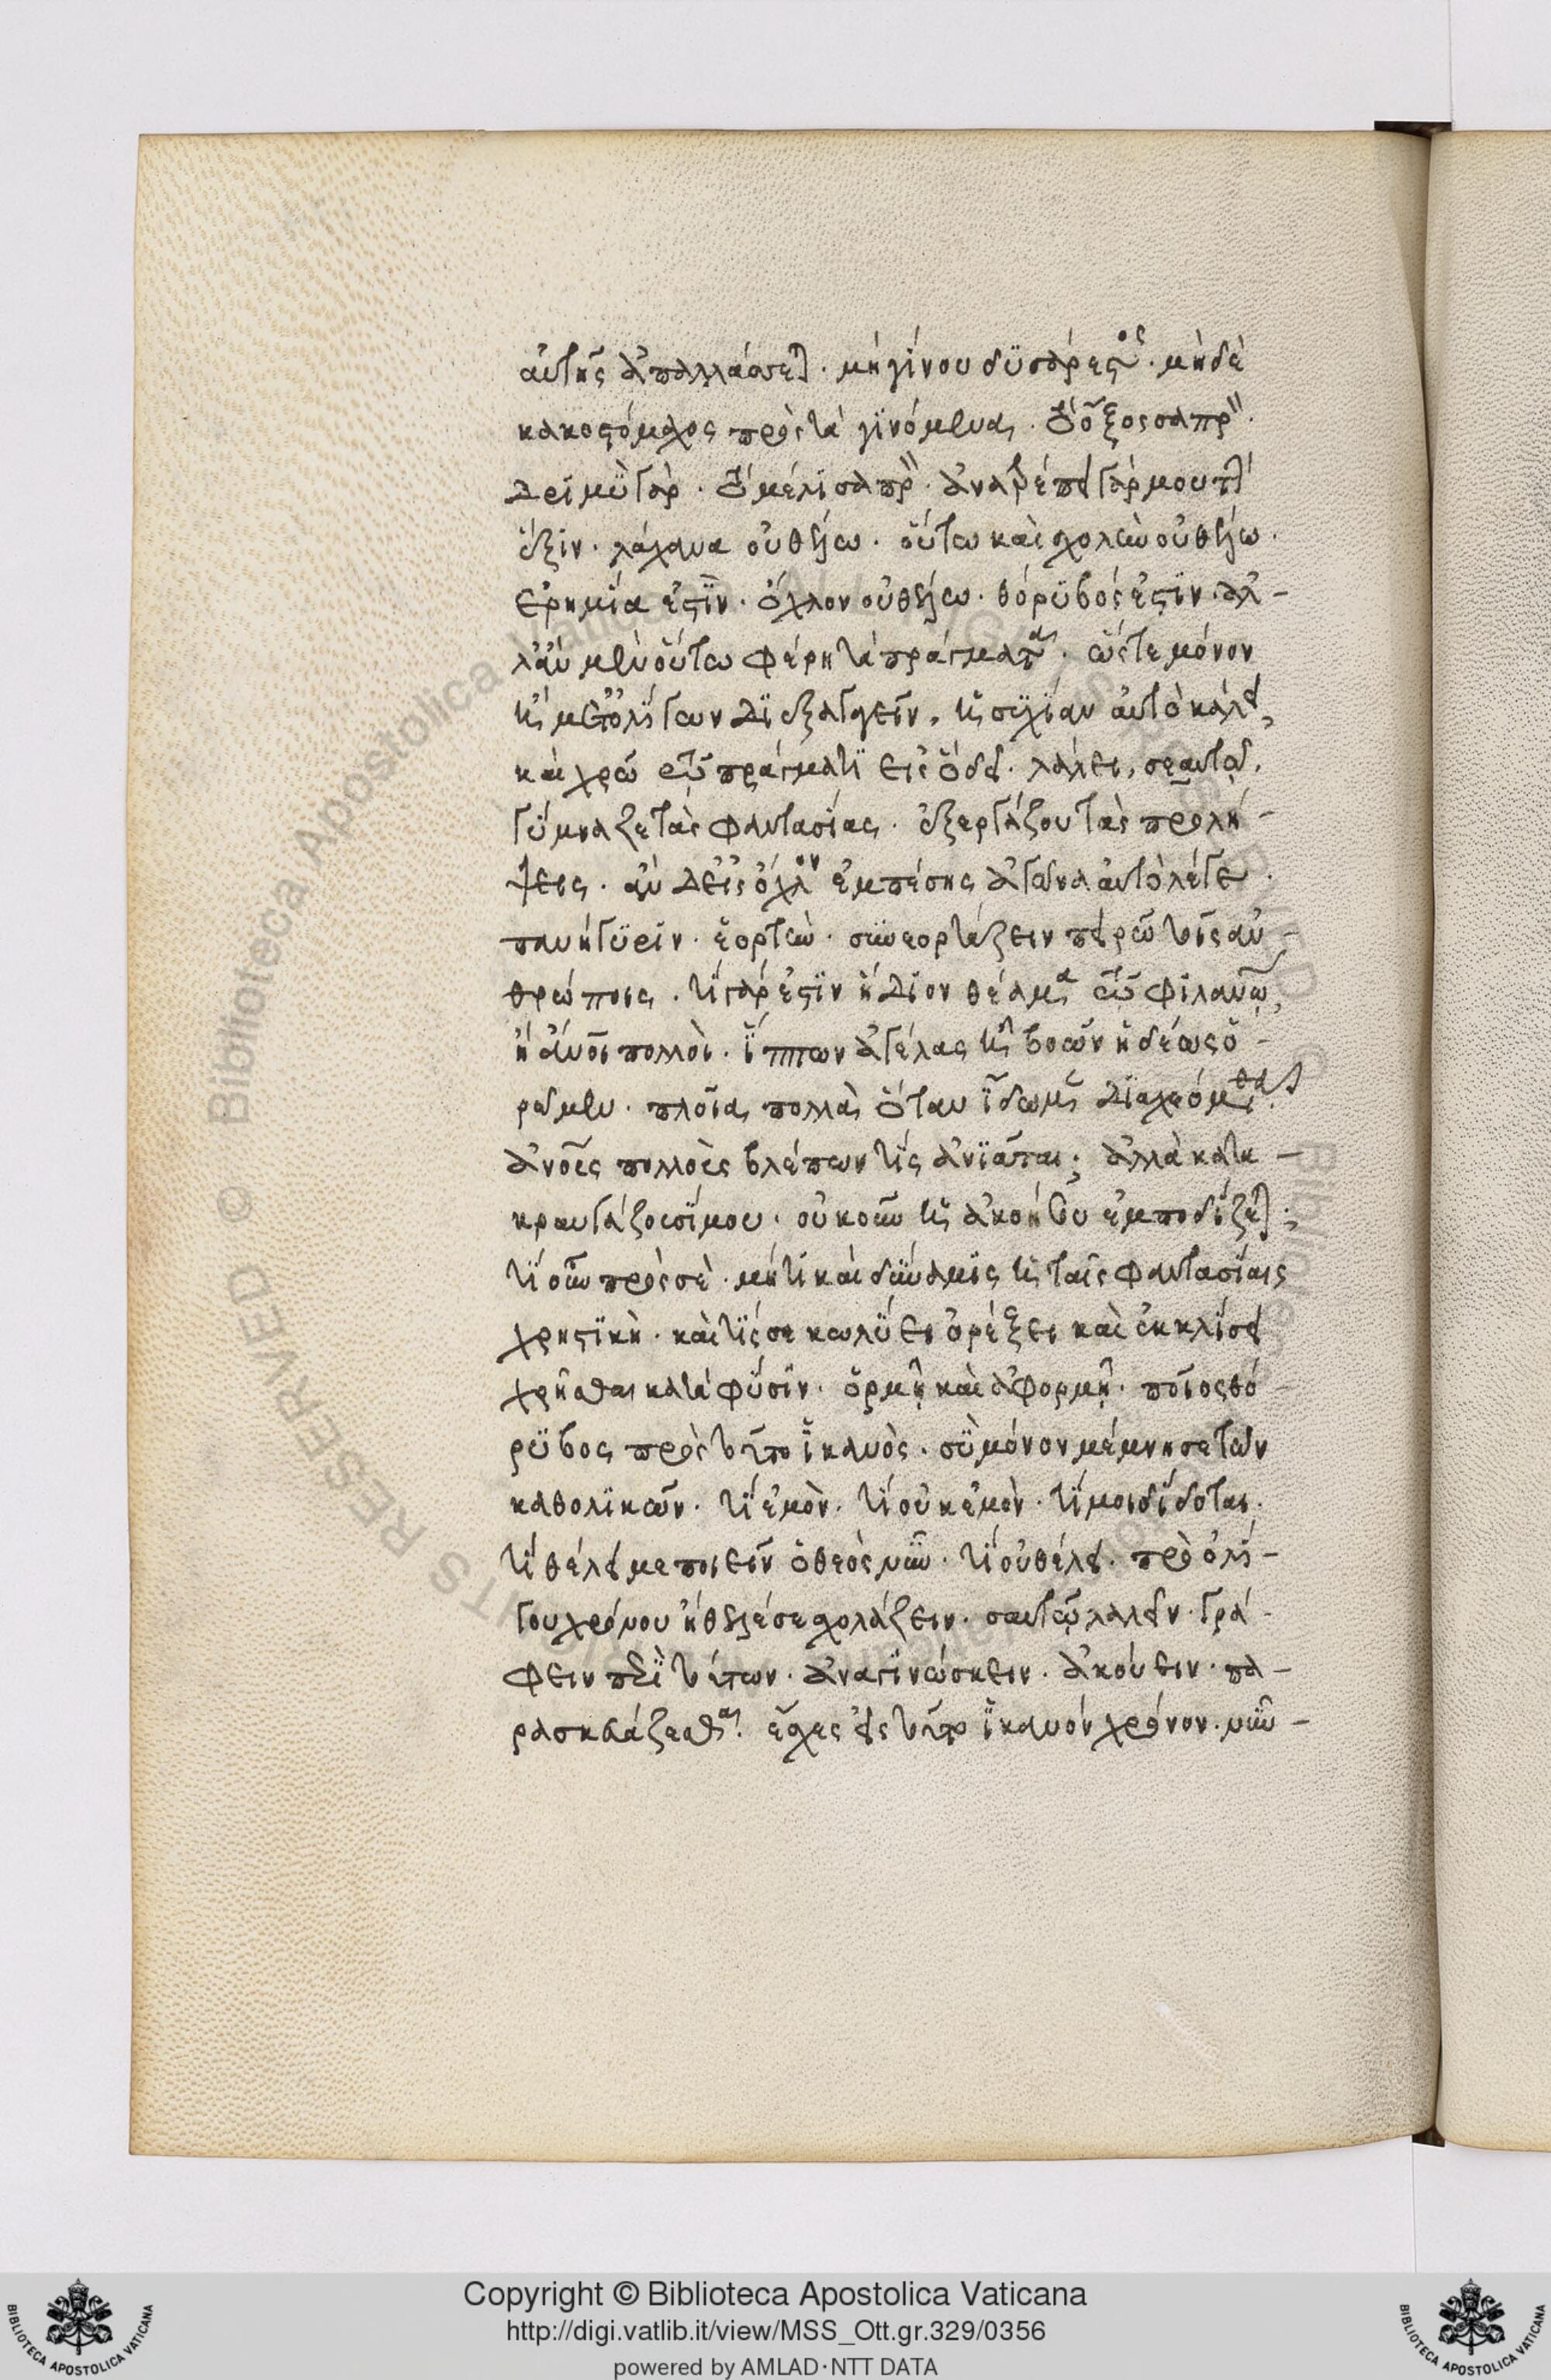 αὐτῆς ἀπαλλάσσεται. μὴ γίνου δυσάρεστος. μηδὲ
κακοστόμαχος πρὸς τὰ γινόμενα. τὸ ὄξος σαπρὸν.
δριμὺ γάρ. τὸ μέλι σαπρὸν. ἀνατρέπει γάρ μου τὴν
ἕξιν. λάχανα οὐ θέλω. οὕτω καὶ σχολὴν οὐ θέλω.
ἐρημία ἐστὶν. ὄχλον οὐ θέλω. θόρυβός ἐστιν. ἀλ-
λ' ἂν μὲν οὕτω φέρῃ τὰ πράγματα, ὥστε μόνον
ἢ μετ' ὀλίγων διεξαγαγεῖν, ἡσυχίαν αὐτὸ κάλει,
καὶ χρῶ τῷ πράγματι εἰς ὃ δεῖ. λάλει σεαυτῷ,
γύμναζε τὰς φαντασίας. ἐξεργάζου τὰς προλή-
ψεις. ἂν δ' εἰς ὄχλον ἐμπέσῃς ἀγῶνα αὐτὸ λέγε.
πανήγυριν. ἑορτὴν. συνεορτάζειν πειρῶ τοῖς ἀν-
θρώποις. τί γάρ ἐστιν ἥδιον θέαμα τῷ φιλανθρώπῳ,
ἢ ἄνθρωποι πολλοὶ. ἵππων ἀγέλας ἢ βοῶν ἡδέως ὁ-
ρῶμεν. πλοῖα πολλὰ ὅταν ἴδωμεν διαχεόμεθα.
ἀνθρώπους πολλοὺς βλέπων τίς ἀνιᾶται; ἀλλὰ κατα-
κραυγάζουσί μου. οὐκοῦν ἡ ἀκοή σου ἐμποδίζεται;
τί οὖν πρὸς σὲ. μήτι καὶ δύναμις ἡ ταῖς φαντασίαις
χρηστικὴ. καὶ τίς σε κωλύει ὀρέξει καὶ ἐκκλίσει
χρῆσθαι κατὰ φύσιν. ὁρμῇ καὶ ἀφορμῇ. ποῖος θό-
ρυβος πρὸς τοῦτο ἱκανὸς. σὺ μόνον μέμνησο τῶν
καθολικῶν. τί ἐμὸν. τί οὐκ ἐμὸν. τί μοι δίδοται.
τί θέλει με ποιεῖν ὁ θεὸς νῦν. τί οὐ θέλει. πρὸ ὀλί-
γου χρόνου ἤθελέ σε σχολάζειν. σαυτῷ λαλεῖν. γρά-
φειν περὶ τούτων. ἀναγινώσκειν. ἀκούειν. πα-
ρασκευάζεσθαι. ἔσχες εἰς τοῦτο ἱκανὸν χρόνον. νῦν-
Copyright © Biblioteca Apostolica Vaticana
http://digi.vatlib.it/view/MSS_Ott.gr.329/0356
powered by AMLAD·NTT DATA